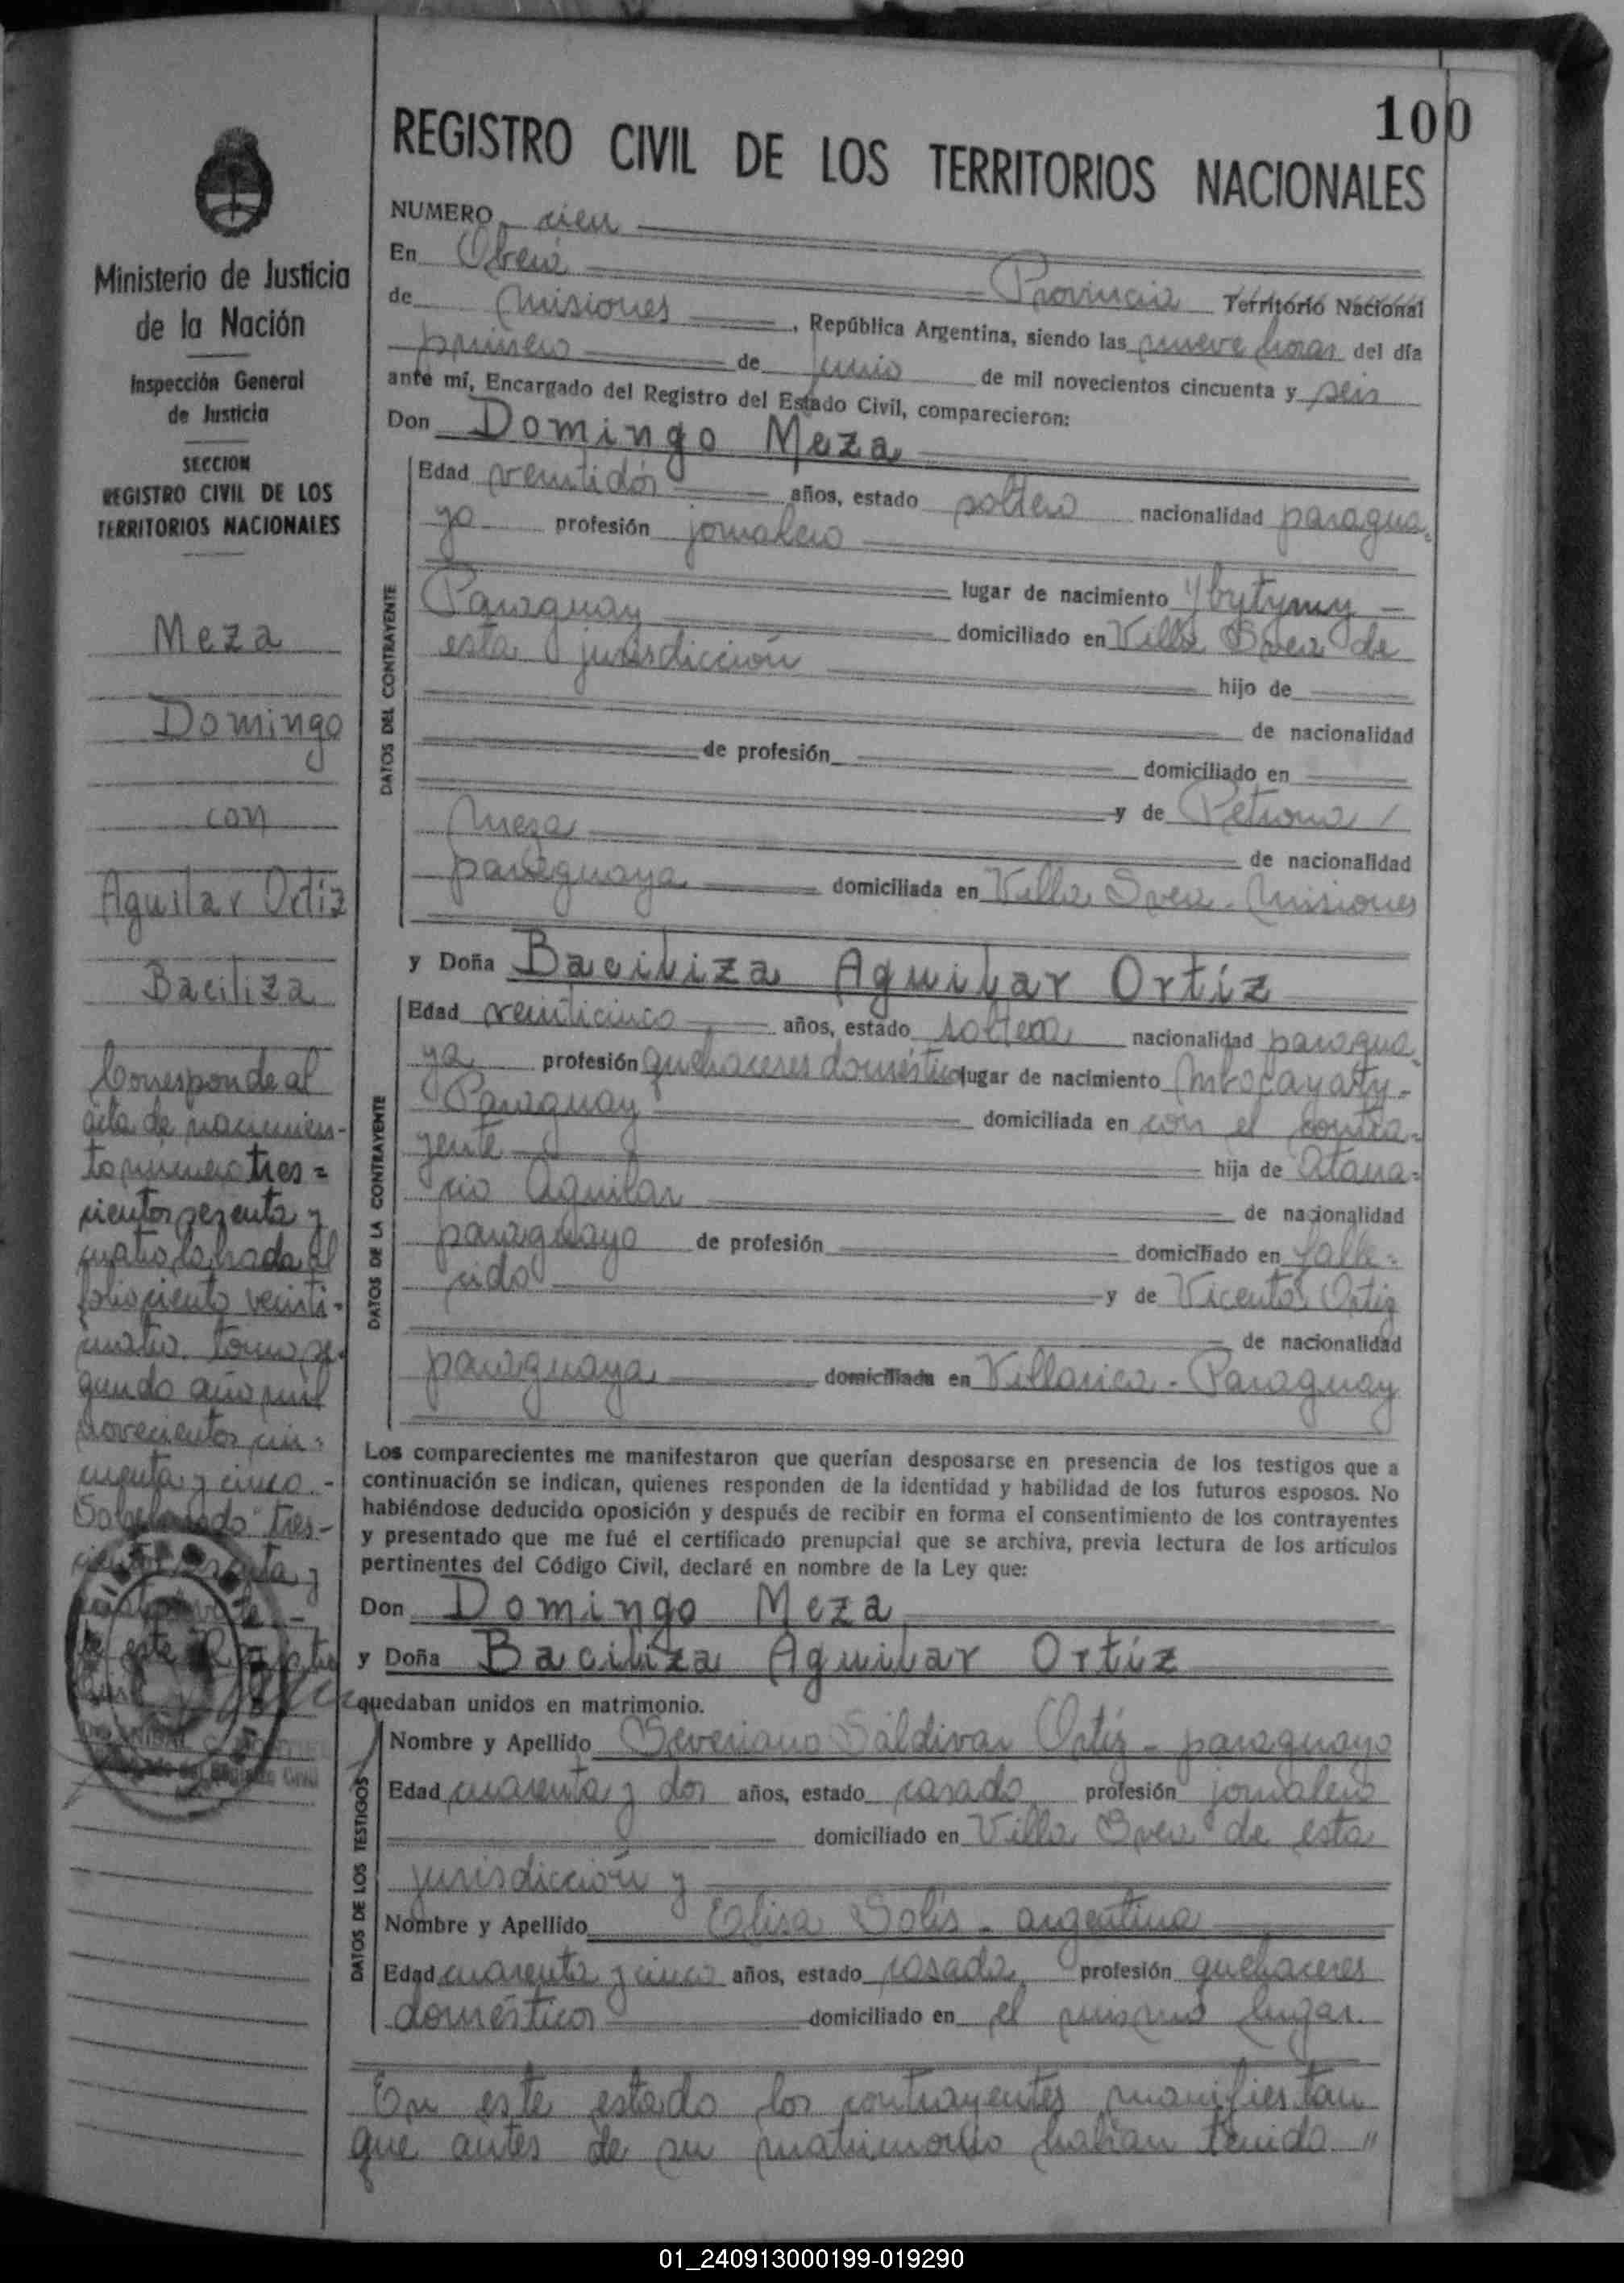 100
REGISTRO CIVIL DE LOS TERRITORIOS NACIONALES
NUMERO cien
En Oberá
Provincia Territorio Nacional
de Misiones, República Argentina, siendo las nueve horas del día
primero de junio de mil novecientos cincuenta y seis
ante mí, Encargado del Registro del Estado Civil, comparecieron:
Don Domingo Meza
DATOS DEL CONTRAYENTE
Edad veintidós años, estado soltero nacionalidad paragua-
yo profesión jornalero
lugar de nacimiento Ybytymy -
Paraguay domiciliado en Villa Svea de
esta jurisdicción
hijo de
de nacionalidad
de profesión domiciliado en
y de Petrona
Meza
de nacionalidad
paraguaya domiciliada en Villa Svea - Misiones
y Doña Baciliza Aguilar Ortíz
DATOS DE LA CONTRAYENTE
Edad veinticinco años, estado soltera nacionalidad paragua-
ya profesión quehaceres domésticos lugar de nacimiento Mbocayaty -
Paraguay domiciliada en con el contra-
yente hija de Atana-
cio Aguilar
de nacionalidad
paraguayo de profesión domiciliado en falle-
cido y de Vicenta Ortiz
de nacionalidad
paraguaya domiciliada en Villarica - Paraguay
Los comparecientes me manifestaron que querían desposarse en presencia de los testigos que a
continuación se indican, quienes responden de la identidad y habilidad de los futuros esposos. No
habiéndose deducido oposición y después de recibir en forma el consentimiento de los contrayentes
y presentado que me fué el certificado prenupcial que se archiva, previa lectura de los artículos
pertinentes del Código Civil, declaré en nombre de la Ley que:
Don Domingo Meza
y Doña Baciliza Aguilar Ortíz
quedaban unidos en matrimonio.
DATOS DE LOS TESTIGOS
Nombre y Apellido Severiano Saldivar Ortiz - paraguayo
Edad cuarenta y dos años, estado casado profesión jornalero
domiciliado en Villa Svea de esta
jurisdicción y
Nombre y Apellido Elisa Solis - argentina
Edad cuarenta y cinco años, estado casada profesión quehaceres
domésticos domiciliado en el mismo lugar.
En este estado los contrayentes manifiestan
que antes de su matrimonio habían tenido "
Ministerio de Justicia
de la Nación
Inspección General
de Justicia
SECCION
REGISTRO CIVIL DE LOS
TERRITORIOS NACIONALES
Meza
Domingo
con
Aguilar Ortiz
Baciliza
Corresponde al
acta de nacimien-
to número tres-
cientos sesenta y
cuatro labrada al
folio ciento veinti-
cuatro tomo se-
gundo año mil
novecientos cin-
cuenta y cinco.-
Sobrerraspado "tres-
cientos sesenta y
cuatro" vale.-
Registro Civil
01_240913000199-019290